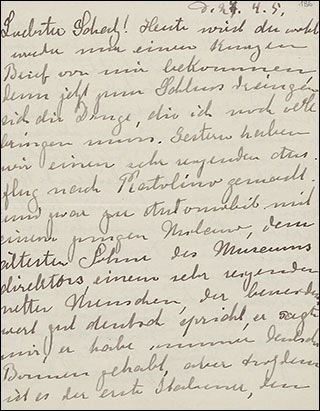 d. 24. 4. 5. 186
Liebster Schatz! Heute wirst du wohl
nur einen kurzen
Brief von mir bekommen
denn jetzt zum Schluss drängen
sich die Dinge, die ich noch alle
bringen muss. Gestern haben
wir einen sehr reizenden Aus-
flug nach gemacht
und zwar per Automobil mit
einem jungen dem
ältesten Sohne des Museums
direktors einem sehr reizenden
netten Menschen, der
wert gut deutsch spricht, er sagte
mir, er habe immer deutsche
Bonnen gehabt, aber trotzdem
ist es der erste Italiener, den